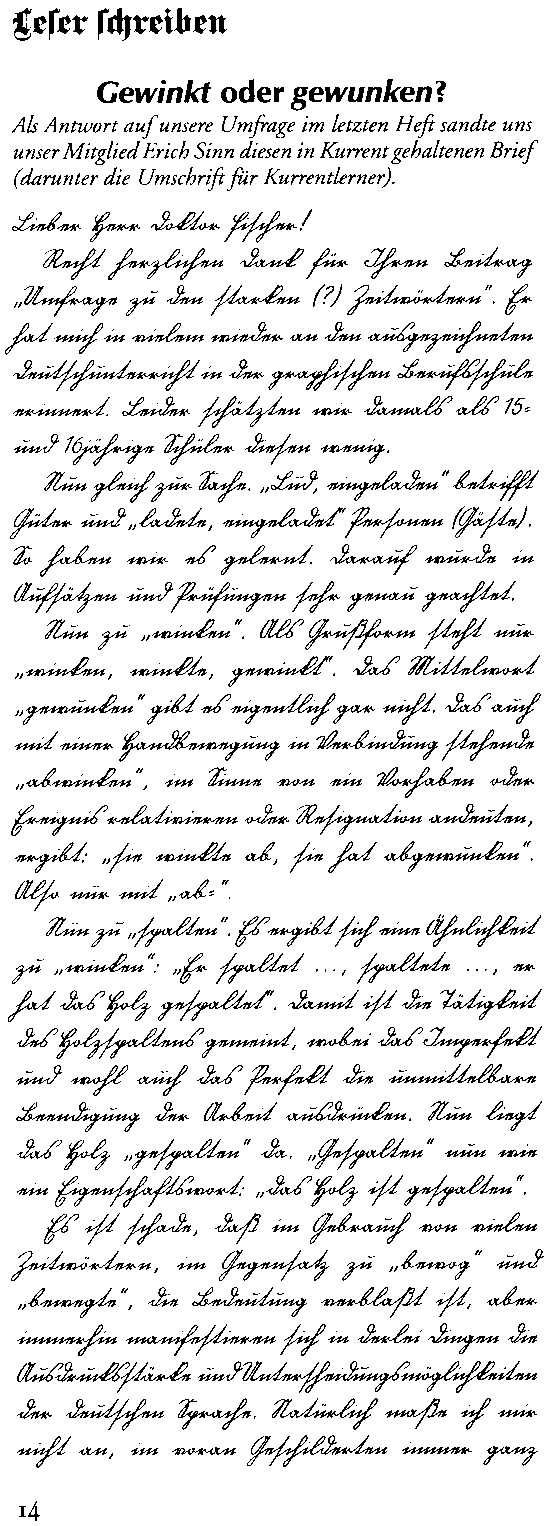 Leser schreiben
Gewinkt oder gewunken?
Als Antwort auf unsere Umfrage im letzten Heft sandte uns
unser Mitglied Erich Sinn diesen in Kurrent gehaltenen Brief
(darunter die Umschrift für Kurrentlerner).
Lieber Herr Doktor Fischer!
Recht herzlichen Dank für Ihren Beitrag
„Umfrage zu den starken (?) Zeitwörtern“. Er
hat mich in vielem wieder an den ausgezeichneten
Deutschunterricht in der graphischen Berufsschule
erinnert. Leider schätzten wir damals als 15-
und 16jährige Schüler diesen wenig.
Nun gleich zur Sache. „Lud, eingeladen“ betrifft
Güter und „ladete, eingeladet“ Personen (Gäste).
So haben wir es gelernt. Darauf wurde in
Aufsätzen und Prüfungen sehr genau geachtet.
Nun zu „winken“. Als Grußform steht nur
„winken, winkte, gewinkt“. Das Mittelwort
„gewunken“ gibt es eigentlich gar nicht. Das auch
mit einer Handbewegung in Verbindung stehende
„abwinken“, im Sinne von ein Vorhaben oder
Ereignis relativieren oder Resignation andeuten,
ergibt: „sie winkte ab, sie hat abgewunken“.
Also nur mit „ab-“.
Nun zu „spalten“. Es ergibt sich eine Ähnlichkeit
zu „winken“: „Er spaltet ..., spaltete ..., er
hat das Holz gespaltet“. Damit ist die Tätigkeit
des Holzspaltens gemeint, wobei das Imperfekt
und wohl auch das Perfekt die unmittelbare
Beendigung der Arbeit ausdrücken. Nun liegt
das Holz „gespalten“ da. „Gespalten“ nun wie
ein Eigenschaftswort: „das Holz ist gespalten“.
Es ist schade, daß im Gebrauch von vielen
Zeitwörtern, im Gegensatz zu „bewog“ und
„bewegte“, die Bedeutung verblaßt ist, aber
immerhin manifestieren sich in derlei Dingen die
Ausdrucksstärke und Unterscheidungsmöglichkeiten
der deutschen Sprache. Natürlich maße ich mir
nicht an, im voran Geschilderten immer ganz
14